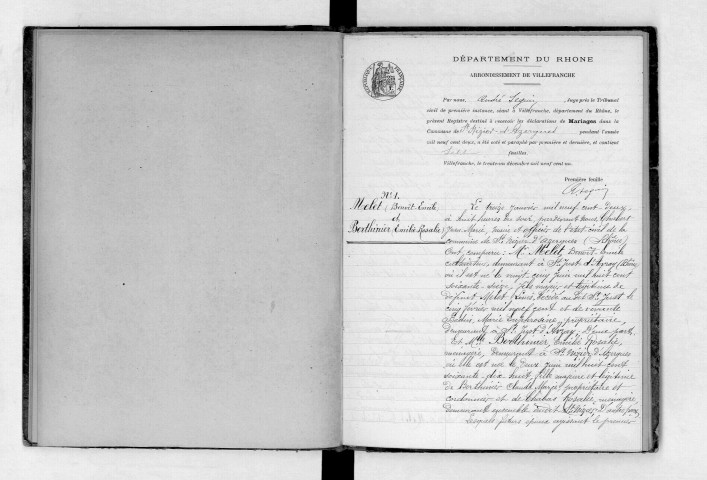 DÉPARTEMENT DU RHONE
ARRONDISSEMENT DE VILLEFRANCHE
Par nous, André Seguin, Juge près le Tribunal
civil de première instance, séant à Villefranche, département du Rhône, le
présent Registre destiné à recevoir les déclarations de Mariages dans la
Commune de St Nizier-d'Azergues pendant l'année
mil neuf cent deux, a été coté et paraphé par première et dernière, et contient
feuilles.
Villefranche, le trente-un décembre mil neuf cent un.
Première feuille
A. Seguin
N° 1.
Molet (Benoît Emile
et
Berthinier Emilie Rosalie)
Le treize janvier mil neuf cent deux
à huit heures du soir, pardevant nous, Chabert
Jean Marie, maire et officier de l'état civil de la
commune de St Nizier d'Azergues (Rhône)
Ont comparu: Mr Molet, Benoît Emile
cultivateur, demeurant à St Just d'Avray (Rhône)
où il est né le vingt cinq juin mil huit cent
soixante seize, fils majeur et légitime de
défunt Molet Louis, décédé au dit St Just le
cinq février mil neuf cent et de vivante
Marie Euphrosine, propriétaire,
demeurant à St Just d'Avray, d'une part,
Et Mlle Berthinier, Emilie Rosalie,
ménagère, demeurant à St Nizier d'Azergues
où elle est née le deux juin mil huit cent
soixante dix huit, fille majeure et légitime
de Berthinier Claude Marie propriétaire et
cordonnier et de Chabas Rosalie, ménagère,
demeurant ensemble audit St Nizier d'autre part,
Lesquels futurs époux requérant le premier